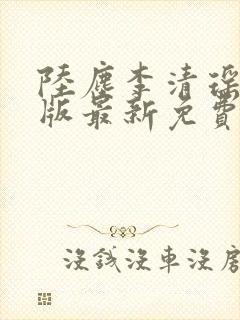 陸塵李清瑤
版最新免費
沒錢沒車沒房